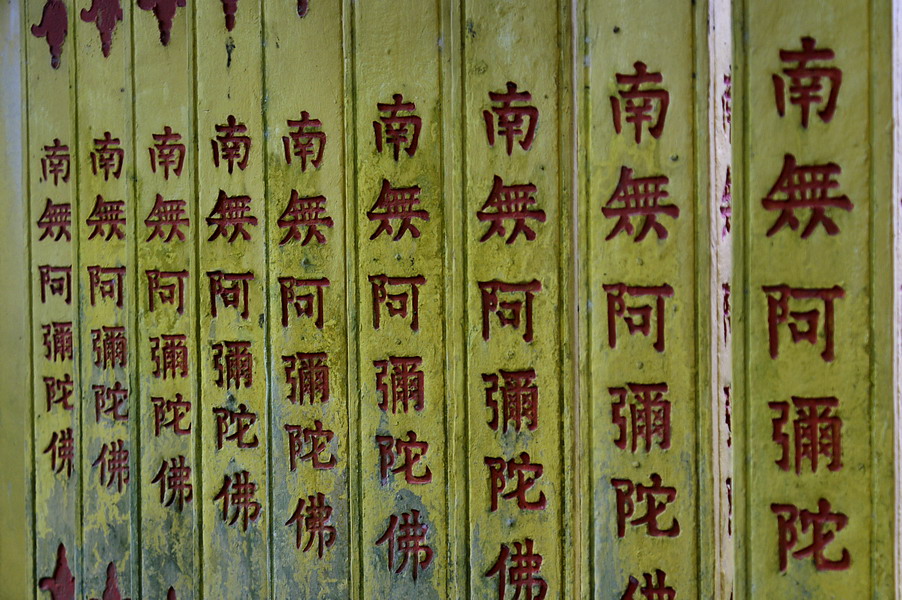 南無阿彌陀
南無阿彌陀佛
南無阿彌陀佛
南無阿彌陀佛
南無阿彌陀佛
南無阿彌陀佛
南無阿彌陀佛
南無阿彌陀佛
南無阿彌陀佛